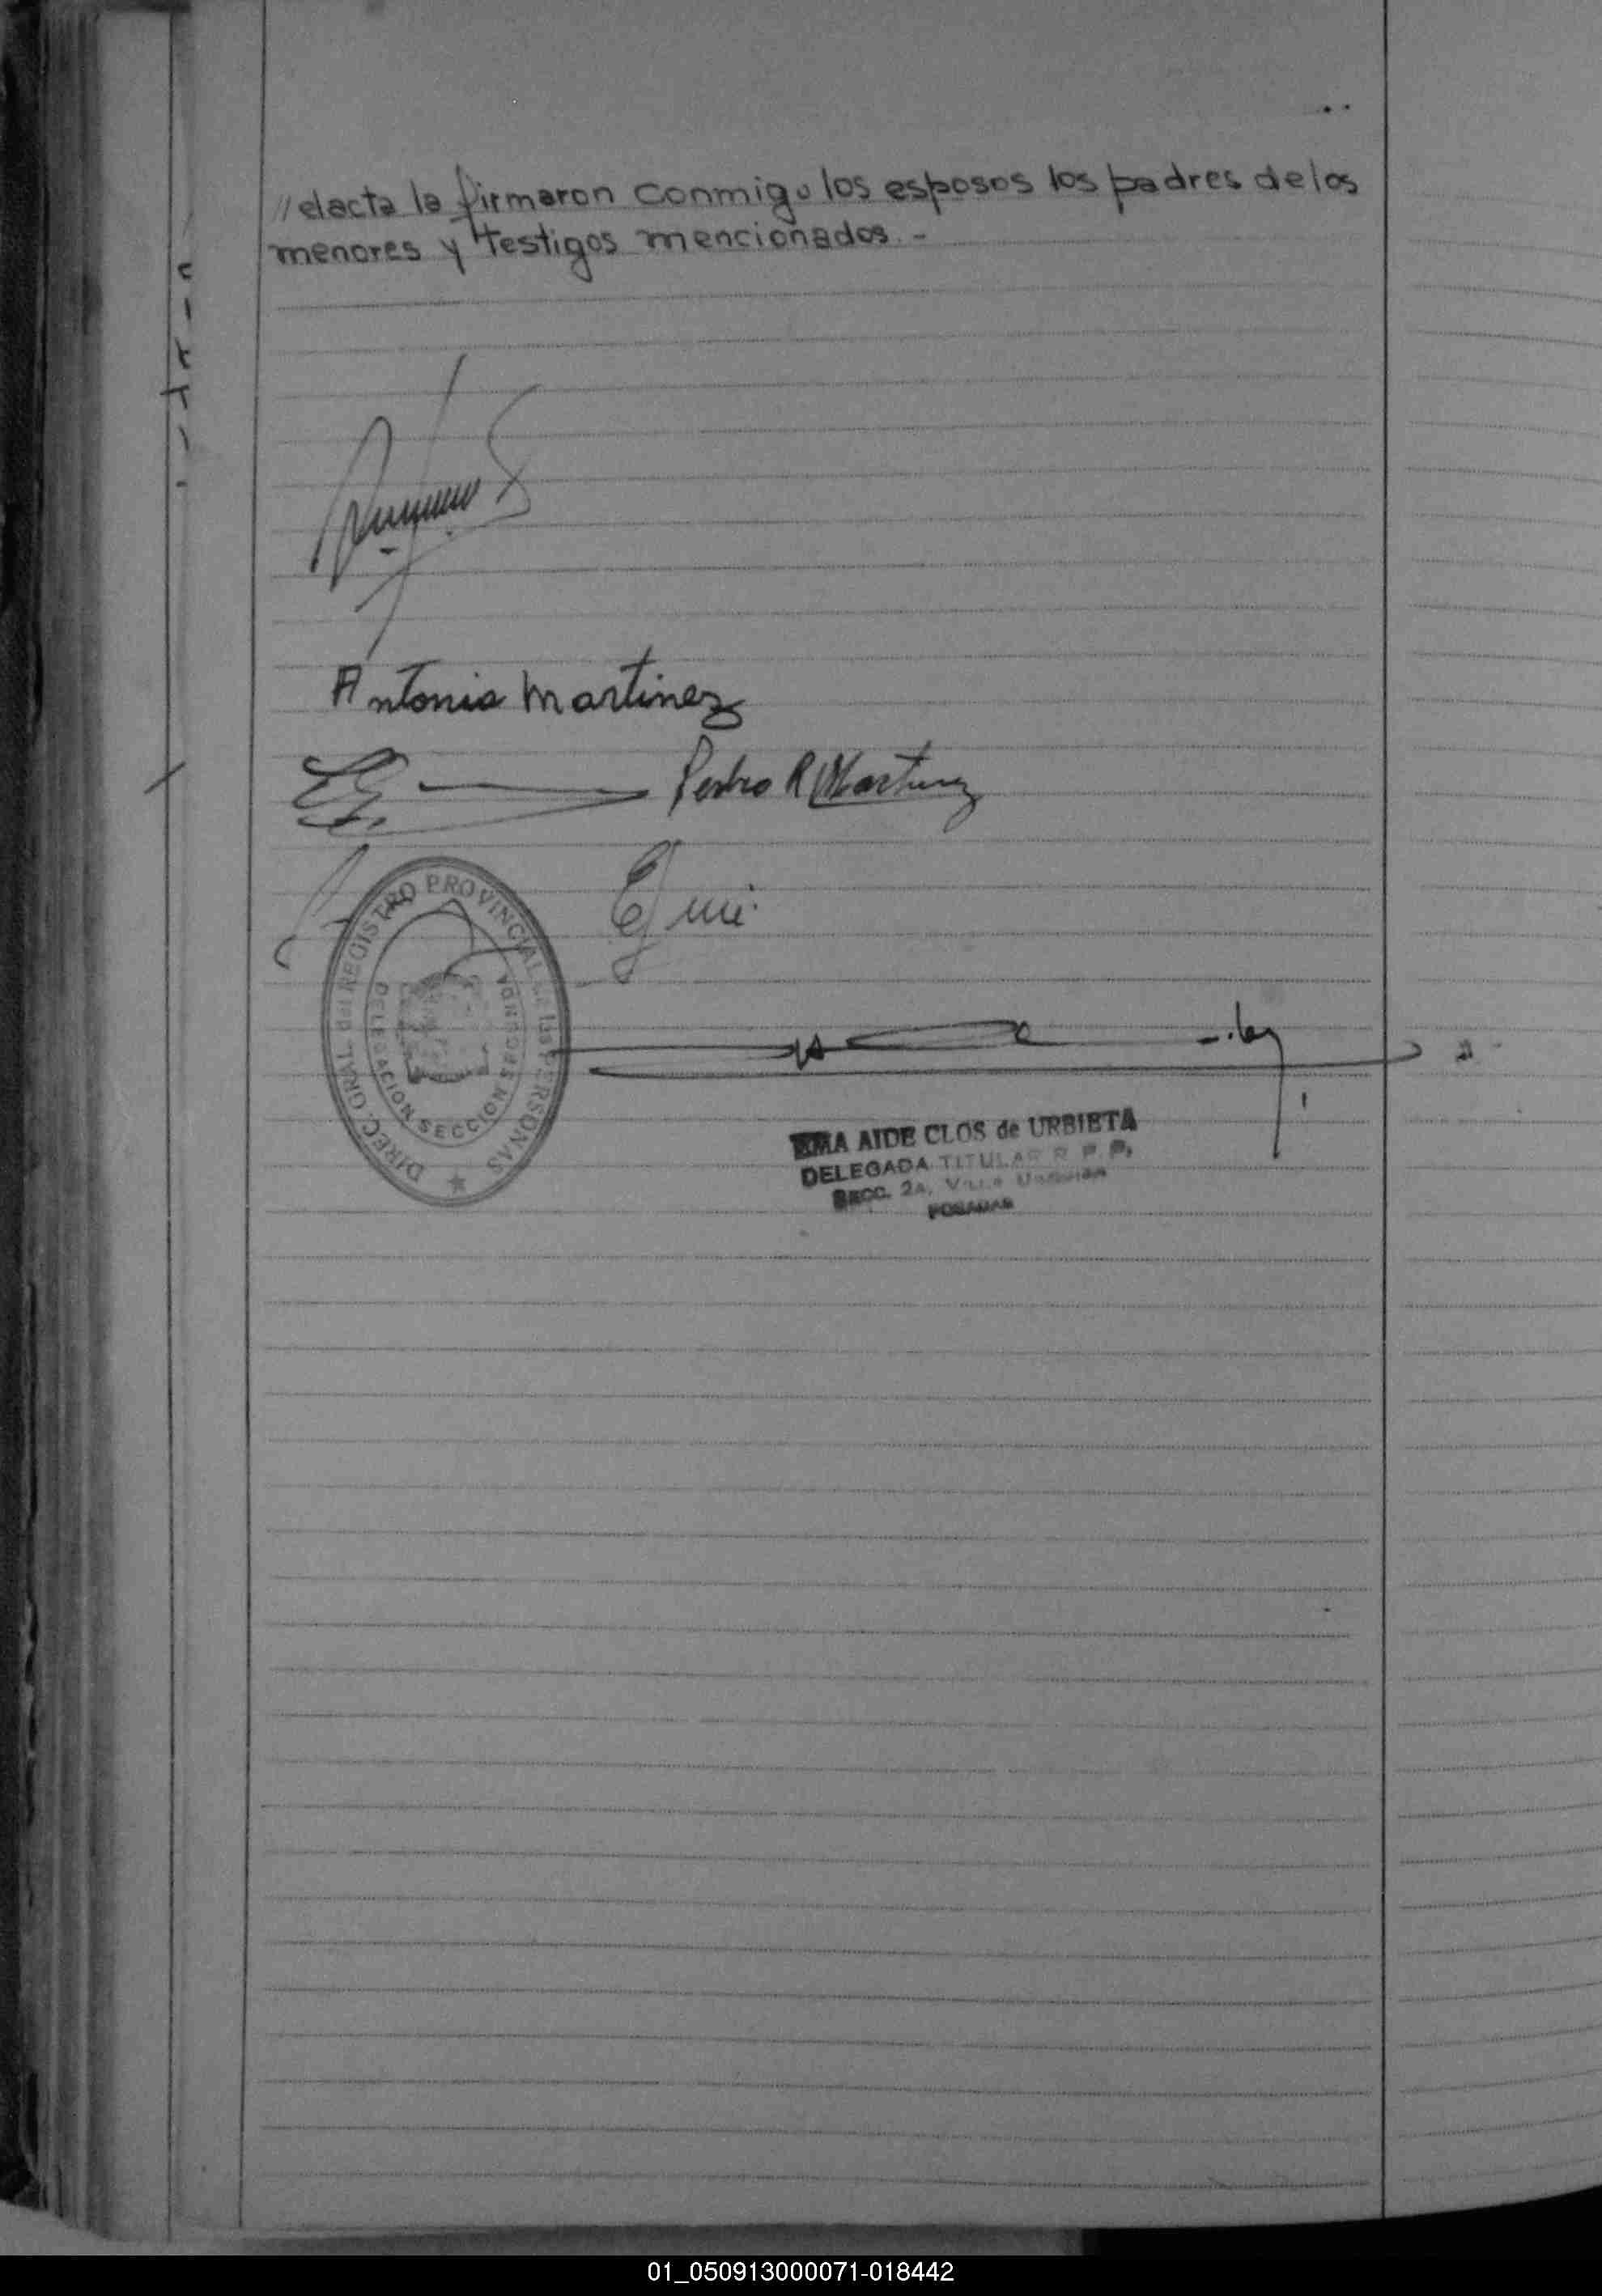 // el acta la firmaron conmigo los esposos los padres de los
menores y testigos mencionados. -
Antonia Martinez
Pedro R Martinez
DIREC. GRAL. del REGISTRO PROVINCIAL de las PERSONAS
DELEGACION SECCION SEGUNDA
AIDE CLOS de URBIETA
DELEGADA TITULAR R. P. P.
SECC. 2A. VILLA
POSADAS
01_050913000071-018442